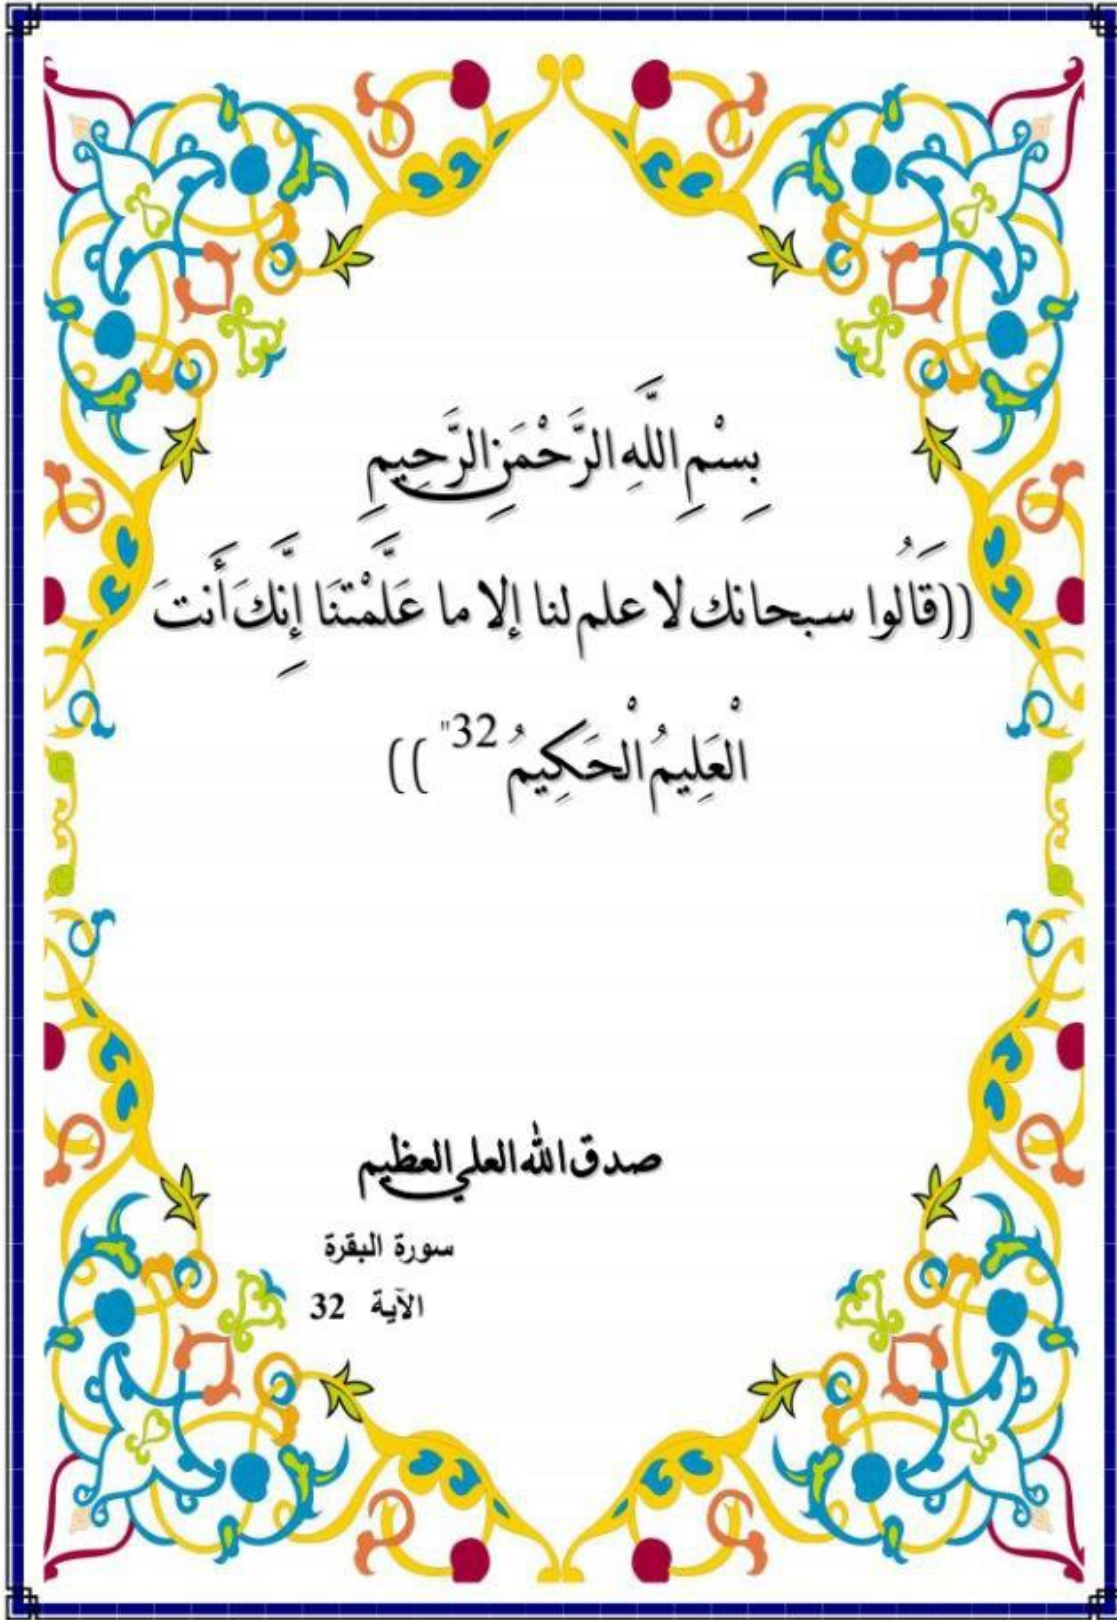 بِسْمِ اللَّهِ الرَّحْمَنِ الرَّحِيمِ
((قَالُوا سبحانك لا علم لنا إلا ما عَلَّمْتَنَا إِنَّكَ أَنتَ
الْعَلِيمُ الْحَكِيمُ 32" ))
صدق الله العلي العظيم
سورة البقرة
الآية 32